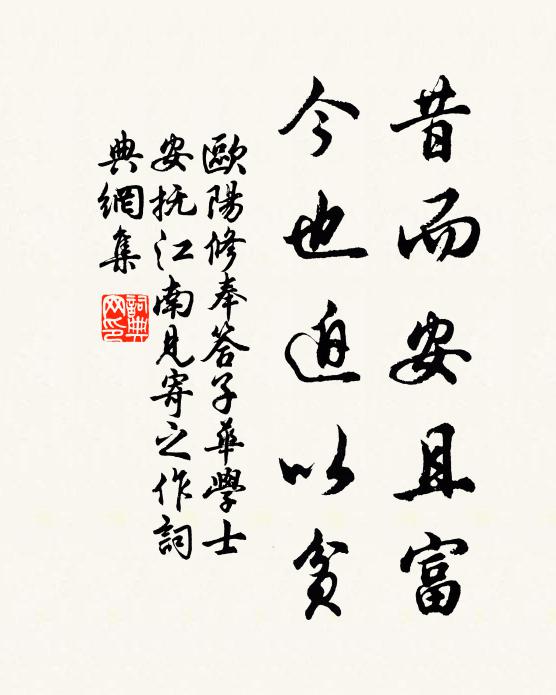 昔而安且富
今也迫以貧
歐陽修奉答子華學士
安抚江南見寄之作詞
典網集
詞典
网印